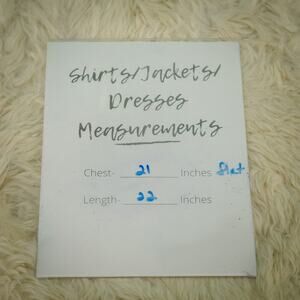 Shirts/Jackets/
Dresses
Measurements
Chest- 21 Inches flat
Length- 22 Inches